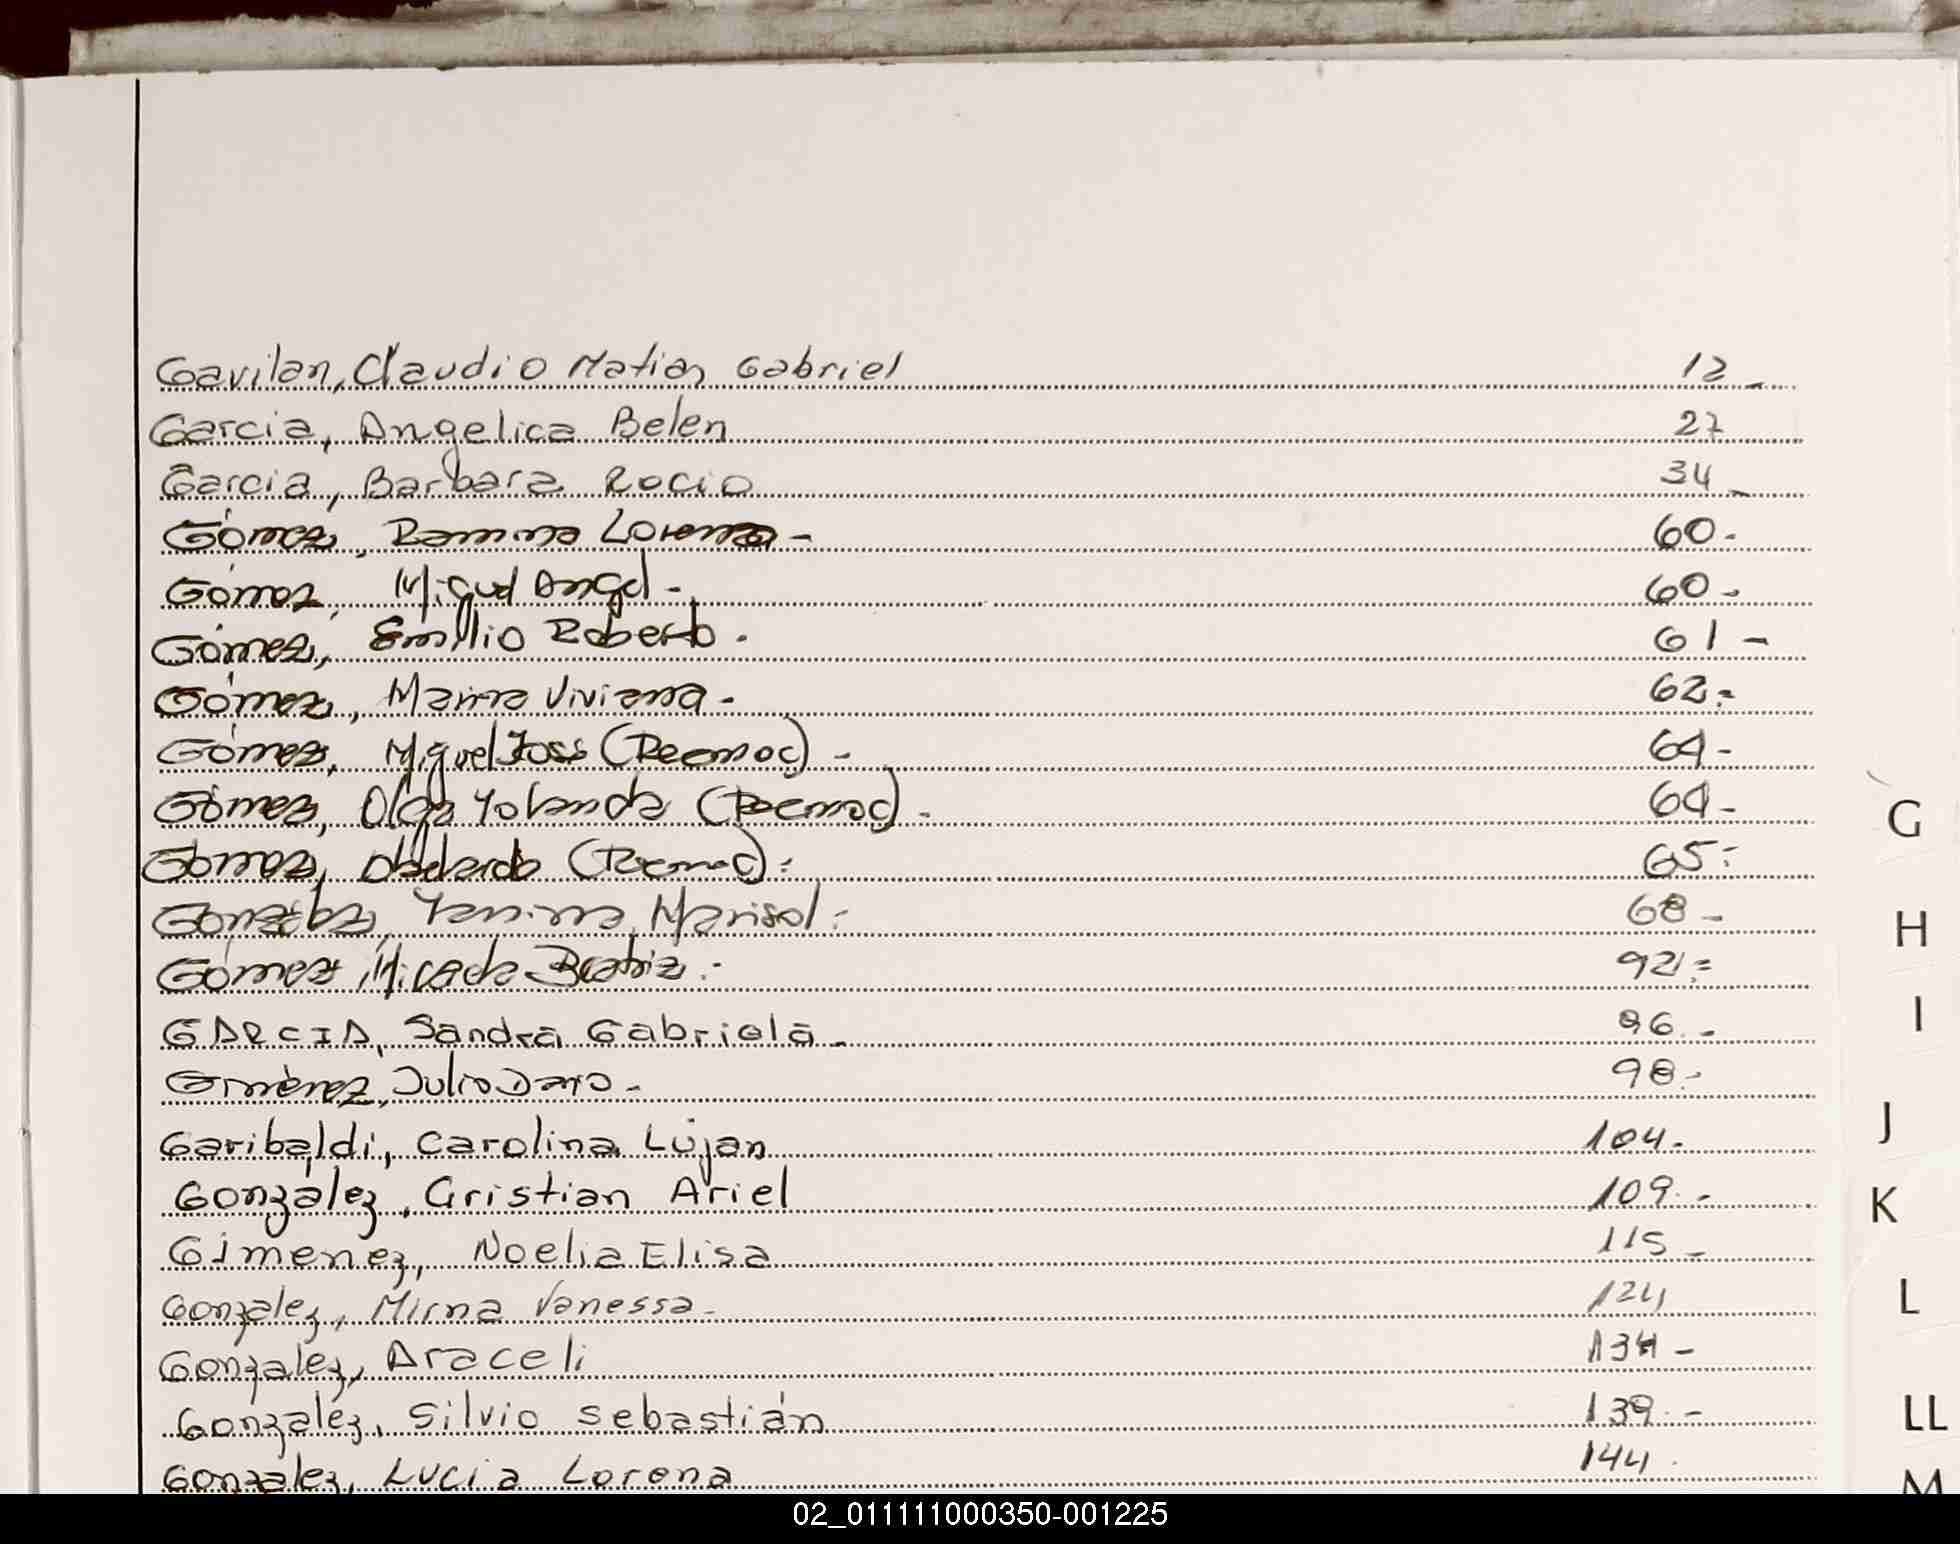 Gavilan, Claudio Matias Gabriel 12
Garcia, Angelica Belen 27
Garcia, Barbara Rocio 34
Gómez, Romina Lorena 60
Gómez, Miguel Angel 60
Gómez, Emilio Roberto 61
Gómez, Marina Viviana 62
Gómez, Miguel José 64
Gómez, Olga Yolanda 64
Gómez, Abelardo 65
González, Yanina Marisol 68
Gómez Micaela Beatriz 92
GARCIA, Sandra Gabriela 96
Giménez, Julio Dario 98
Garibaldi, Carolina Luján 104
González, Cristian Ariel 109
Gimenez, Noelia Elisa 115
Gonzalez, Mirna Vanessa 124
Gonzalez, Araceli 134
Gonzalez, Silvio Sebastián 139
Gonzalez, Lucia Lorena 144
G
H
I
J
K
L
LL
M
02_011111000350-001225